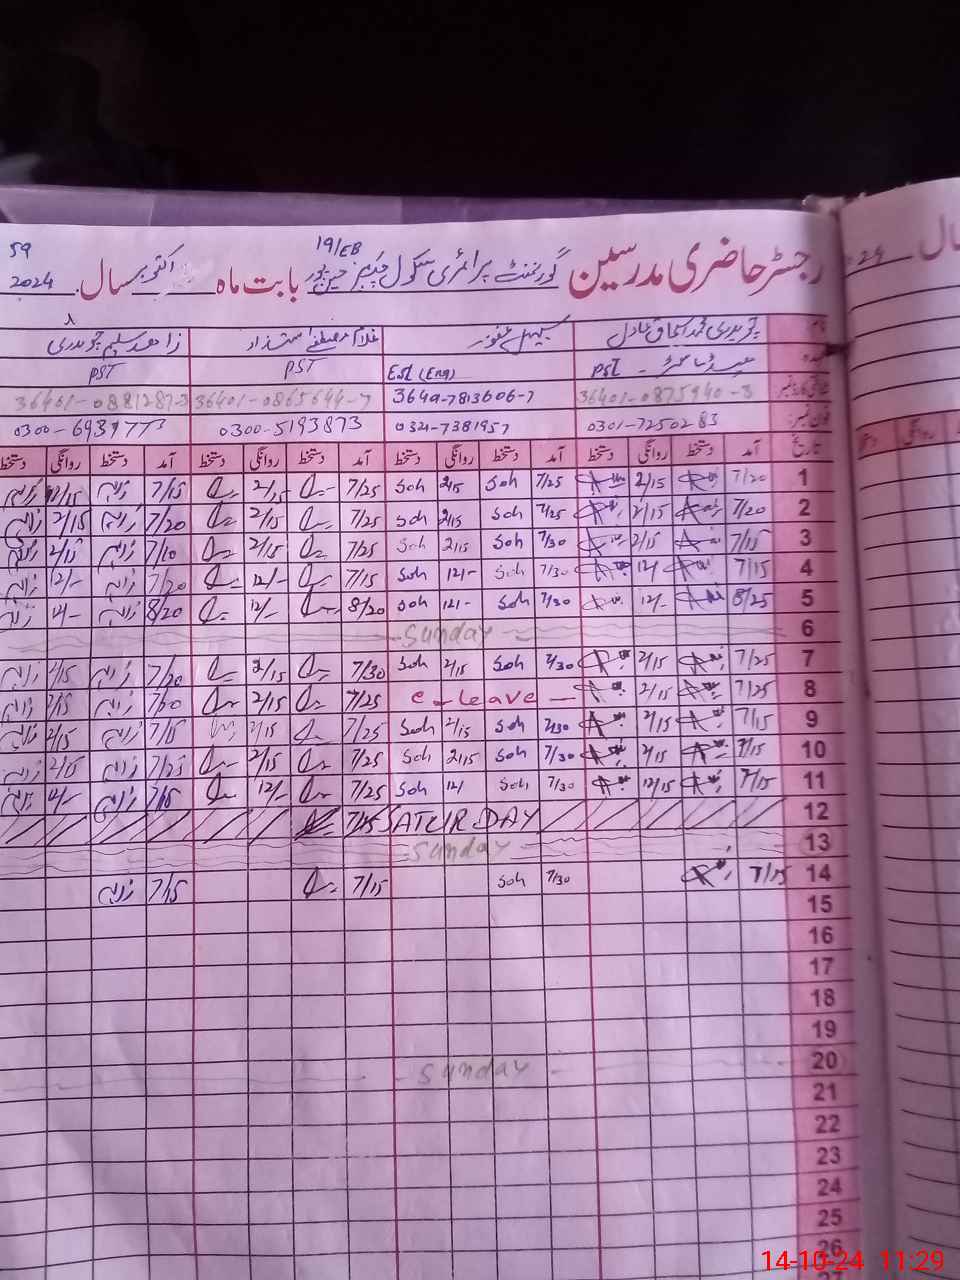 19/EB
رجسٹر حاضری مدرسین گورنمنٹ پرائمری سکول بابت ماہ اکتوبر سال 2024
59
چوہدری محمد اسحاق عادل سہیل غفور غلام مصطفےٰ شہزاد زاھد سلیم چوہدری
PST ESE (Eng) PST PST
36401-0875940-3 3649-7813606-7 36401-0865644-7 36401-0881287-3
0301-7250283 0321-7381957 0300-5193873 0300-6931773
تاریخ آمد دستخط روانگی دستخط آمد دستخط روانگی دستخط آمد دستخط روانگی دستخط آمد دستخط روانگی دستخط
1 7/20 2/15 7/25 Soh 2/15 Soh 7/25 2/15 7/15 2/15
2 7/20 2/15 7/25 Soh 2/15 Soh 7/25 2/15 7/20 2/15
3 7/15 2/15 7/30 Soh 2/15 Soh 7/25 2/15 7/10 2/15
4 7/15 12/ 7/30 Soh 12/- Soh 7/15 12/- 7/20 12/-
5 8/25 12/- 7/30 Soh 12/- Soh 8/20 12/- 8/20 12/-
6 Sunday
7 7/25 2/15 7/30 Soh 2/15 Soh 7/30 2/15 7/20 2/15
8 7/25 2/15 C-Leave 7/25 2/15 7/20 2/15
9 7/15 2/15 7/30 Soh 2/15 Soh 7/25 2/15 7/15 2/15
10 7/15 2/15 7/30 Soh 2/15 Soh 7/25 2/15 7/25 2/15
11 7/15 12/15 7/30 Soh 12/ Soh 7/25 12/- 7/15 12/-
12 SATURDAY 7/15
13 Sunday
14 7/15 7/30 Soh 7/15 7/15
15
16
17
18
19
20 Sunday
21
22
23
24
25
26
14-10-24 11:29